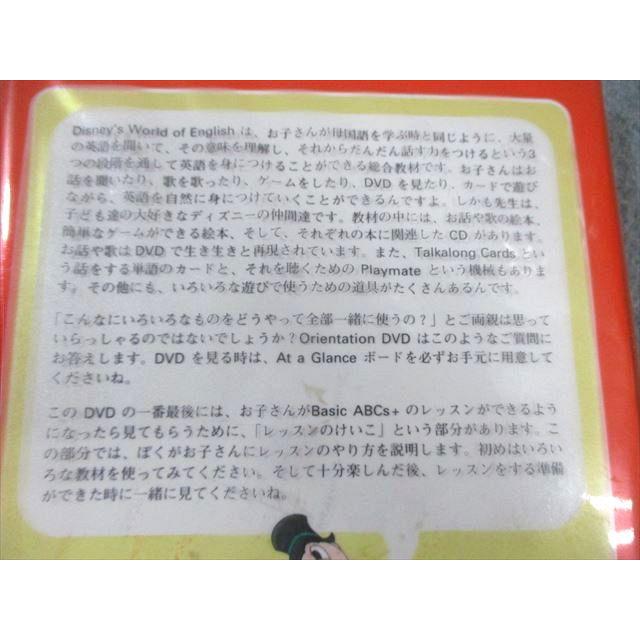 Disney's World of English は、お子さんが母国語を学ぶ時と同じように、大量
の英語を聞いて、その意味を理解し、それからだんだん話す力をつけるという3
つの段階を通して英語を身につけることができる総合教材です。お子さんはお
話を聞いたり、歌を歌ったり、ゲームをしたり、DVD を見たり、カードで遊び
ながら、英語を自然に身につけていくことができるんですよ。しかも先生は、
子ども達の大好きなディズニーの仲間達です。教材の中には、お話や歌の絵本、
簡単なゲームができる絵本、そして、それぞれの本に関連した CD があります。
お話や歌は DVD で生き生きと再現されています。また、Talkalong Cards とい
う話をする単語のカードと、それを聴くための Playmate という機械もありま
す。その他にも、いろいろな遊びで使うための道具がたくさんあるんです。
「こんなにいろいろなものをどうやって全部一緒に使うの?」とご両親は思って
いらっしゃるのではないでしょうか?Orientation DVD はこのようなご質問に
お答えします。DVD を見る時は、At a Glance ボードを必ずお手元に用意して
くださいね。
この DVD の一番最後には、お子さんがBasic ABCs+ のレッスンができるよう
になったら見てもらうために、「レッスンのけいこ」という部分があります。こ
の部分では、ぼくがお子さんにレッスンのやり方を説明します。初めはいろい
ろな教材を使ってみてください。そして十分楽しんだ後、レッスンをする準備
ができた時に一緒に見てくださいね。